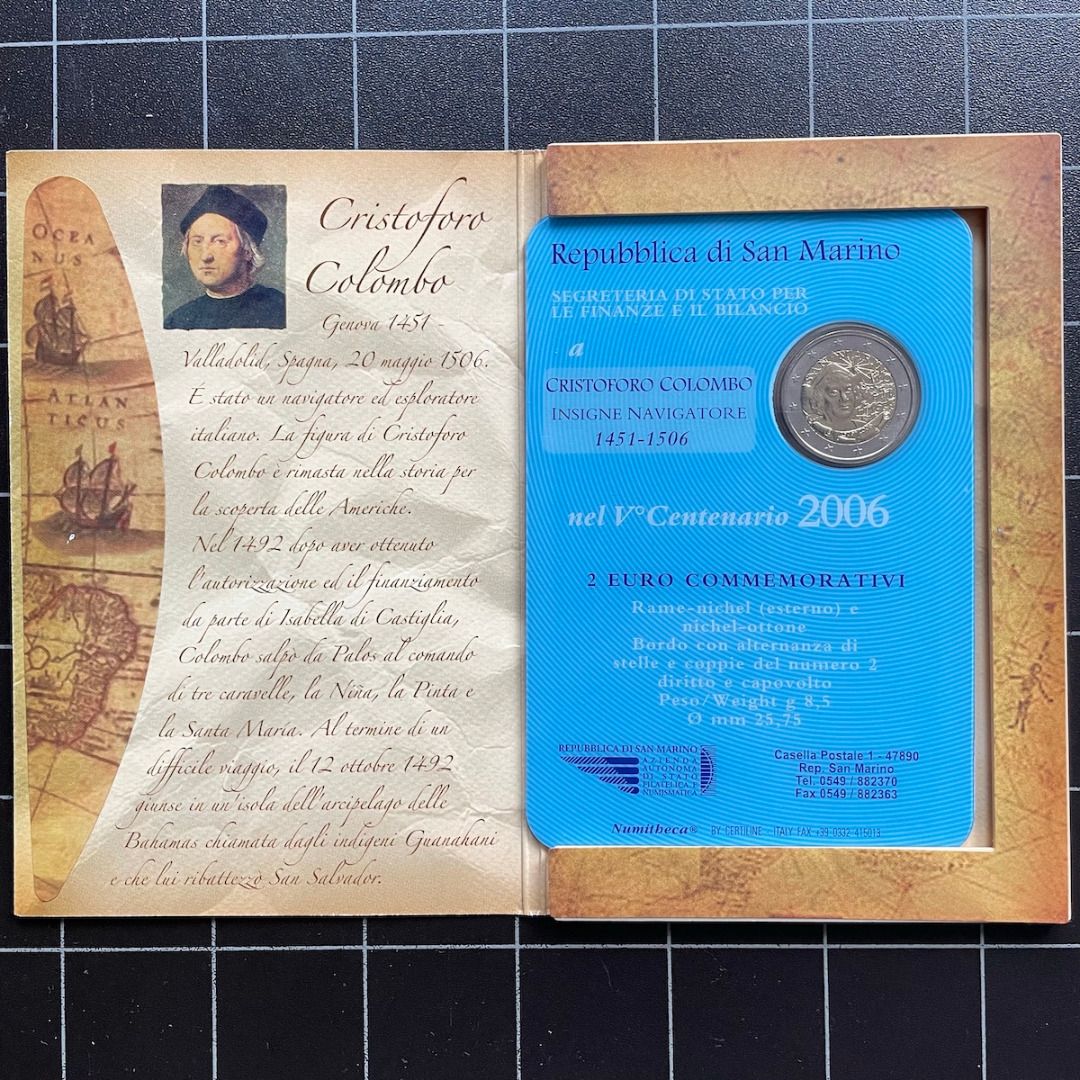 OCEA
NUS
ATLAN
TICUS
Cristoforo
Colombo
Genova 1451 -
Valladolid, Spagna, 20 maggio 1506.
È stato un navigatore ed esploratore
italiano. La figura di Cristoforo
Colombo è rimasta nella storia per
la scoperta delle Americhe.
Nel 1492 dopo aver ottenuto
l'autorizzazione ed il finanziamento
da parte di Isabella di Castiglia,
Colombo salpò da Palos al comando
di tre caravelle, la Niña, la Pinta e
la Santa María. Al termine di un
difficile viaggio, il 12 ottobre 1492
giunse in un'isola dell'arcipelago delle
Bahamas chiamata dagli indigeni Guanahani
e che lui ribattezzò San Salvador.
Repubblica di San Marino
SEGRETERIA DI STATO PER
LE FINANZE E IL BILANCIO
a
CRISTOFORO COLOMBO
INSIGNE NAVIGATORE
1451-1506
nel V° Centenario 2006
2 EURO COMMEMORATIVI
Rame-nichel (esterno) e
nichel-ottone
Bordo con alternanza di
stelle e coppie del numero 2
diritto e capovolto
Peso/Weight g 8,5
Ø mm 25,75
REPUBBLICA DI SAN MARINO
AZIENDA
AUTONOMA
DI STATO
FILATELICA E
NUMISMATICA
Casella Postale 1 - 47890
Rep. San Marino
Tel. 0549 / 882370
Fax 0549 / 882363
Numitheca® BY CERTILINE - ITALY FAX +39-0332 415013